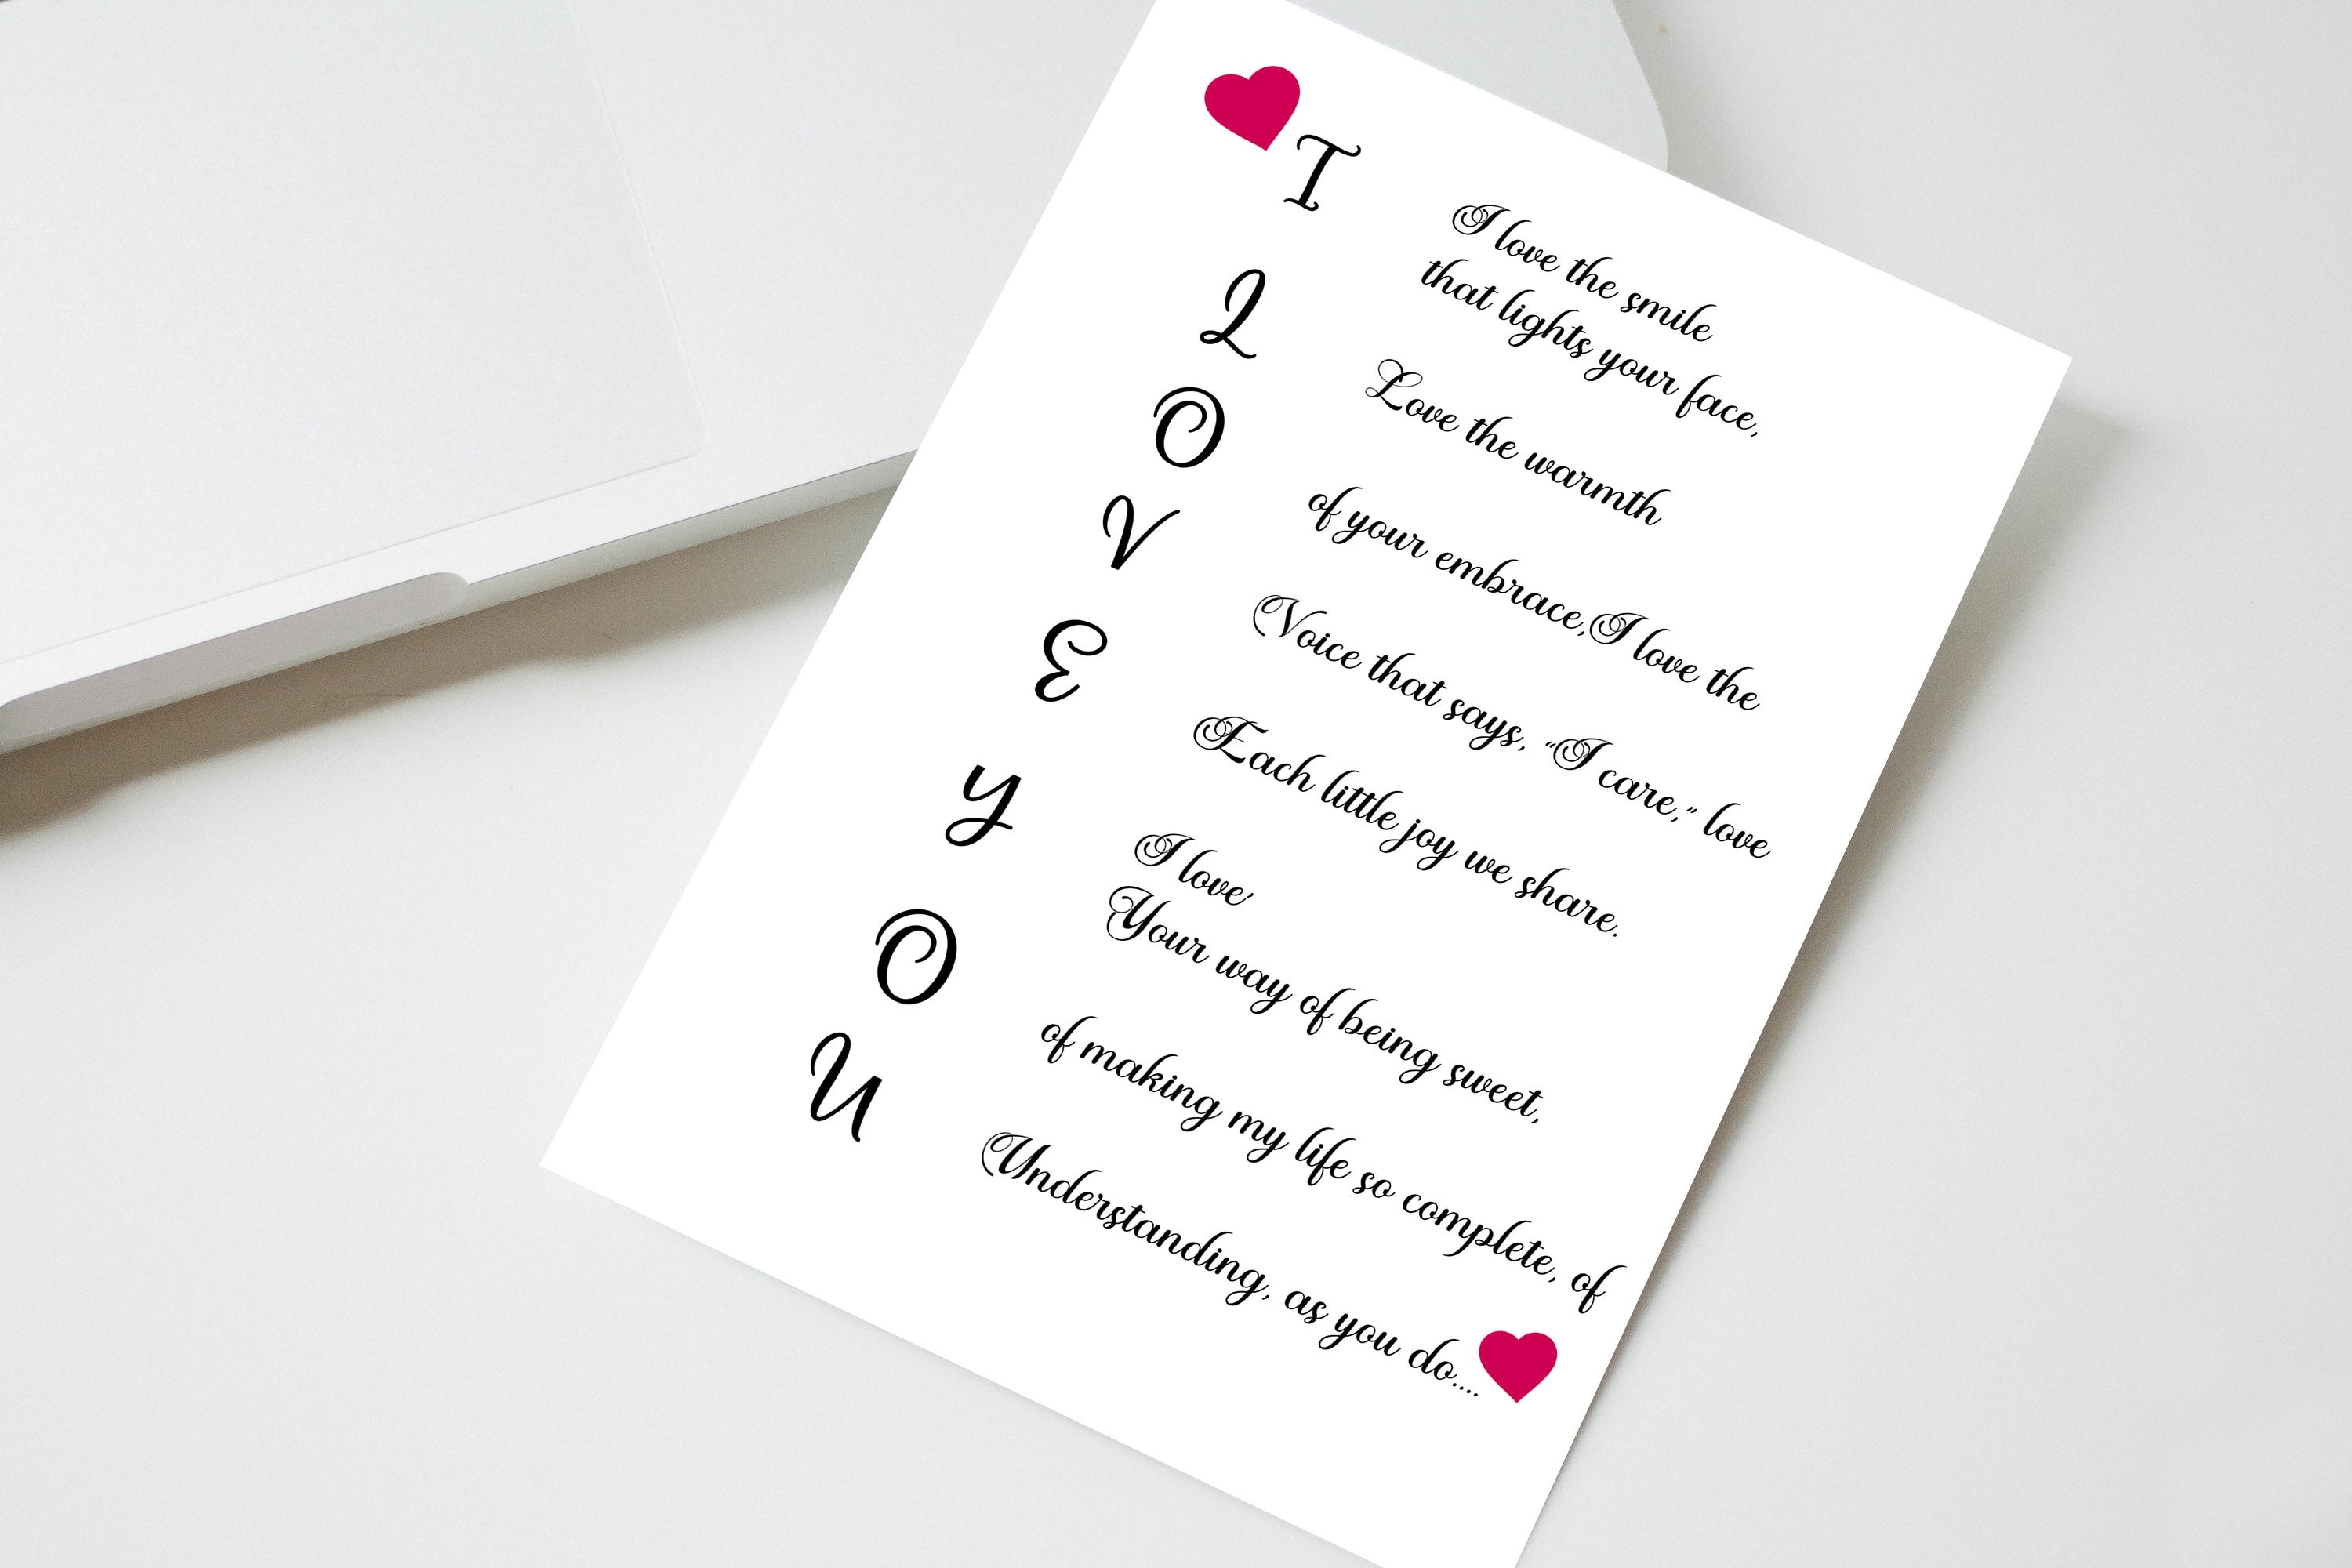 I
L
O
V
E
y
O
U
I love the smile
that lights your face,
Love the warmth
of your embrace,I love the
Voice that says, “I care,” love
Each little joy we share.
I love'
Your way of being sweet,
of making my life so complete, of
Understanding, as you do....